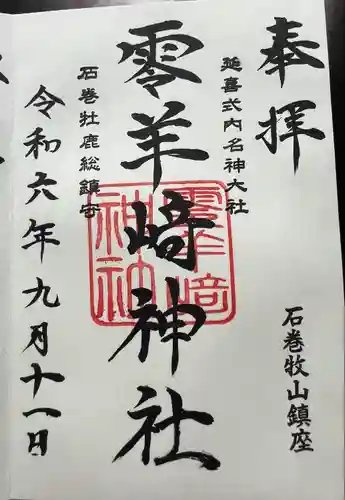 奉拝
石巻牧山鎮座
延喜式内名神大社
零羊崎神社
零羊崎
神社
石巻牡鹿総鎮守
令和六年九月十一日